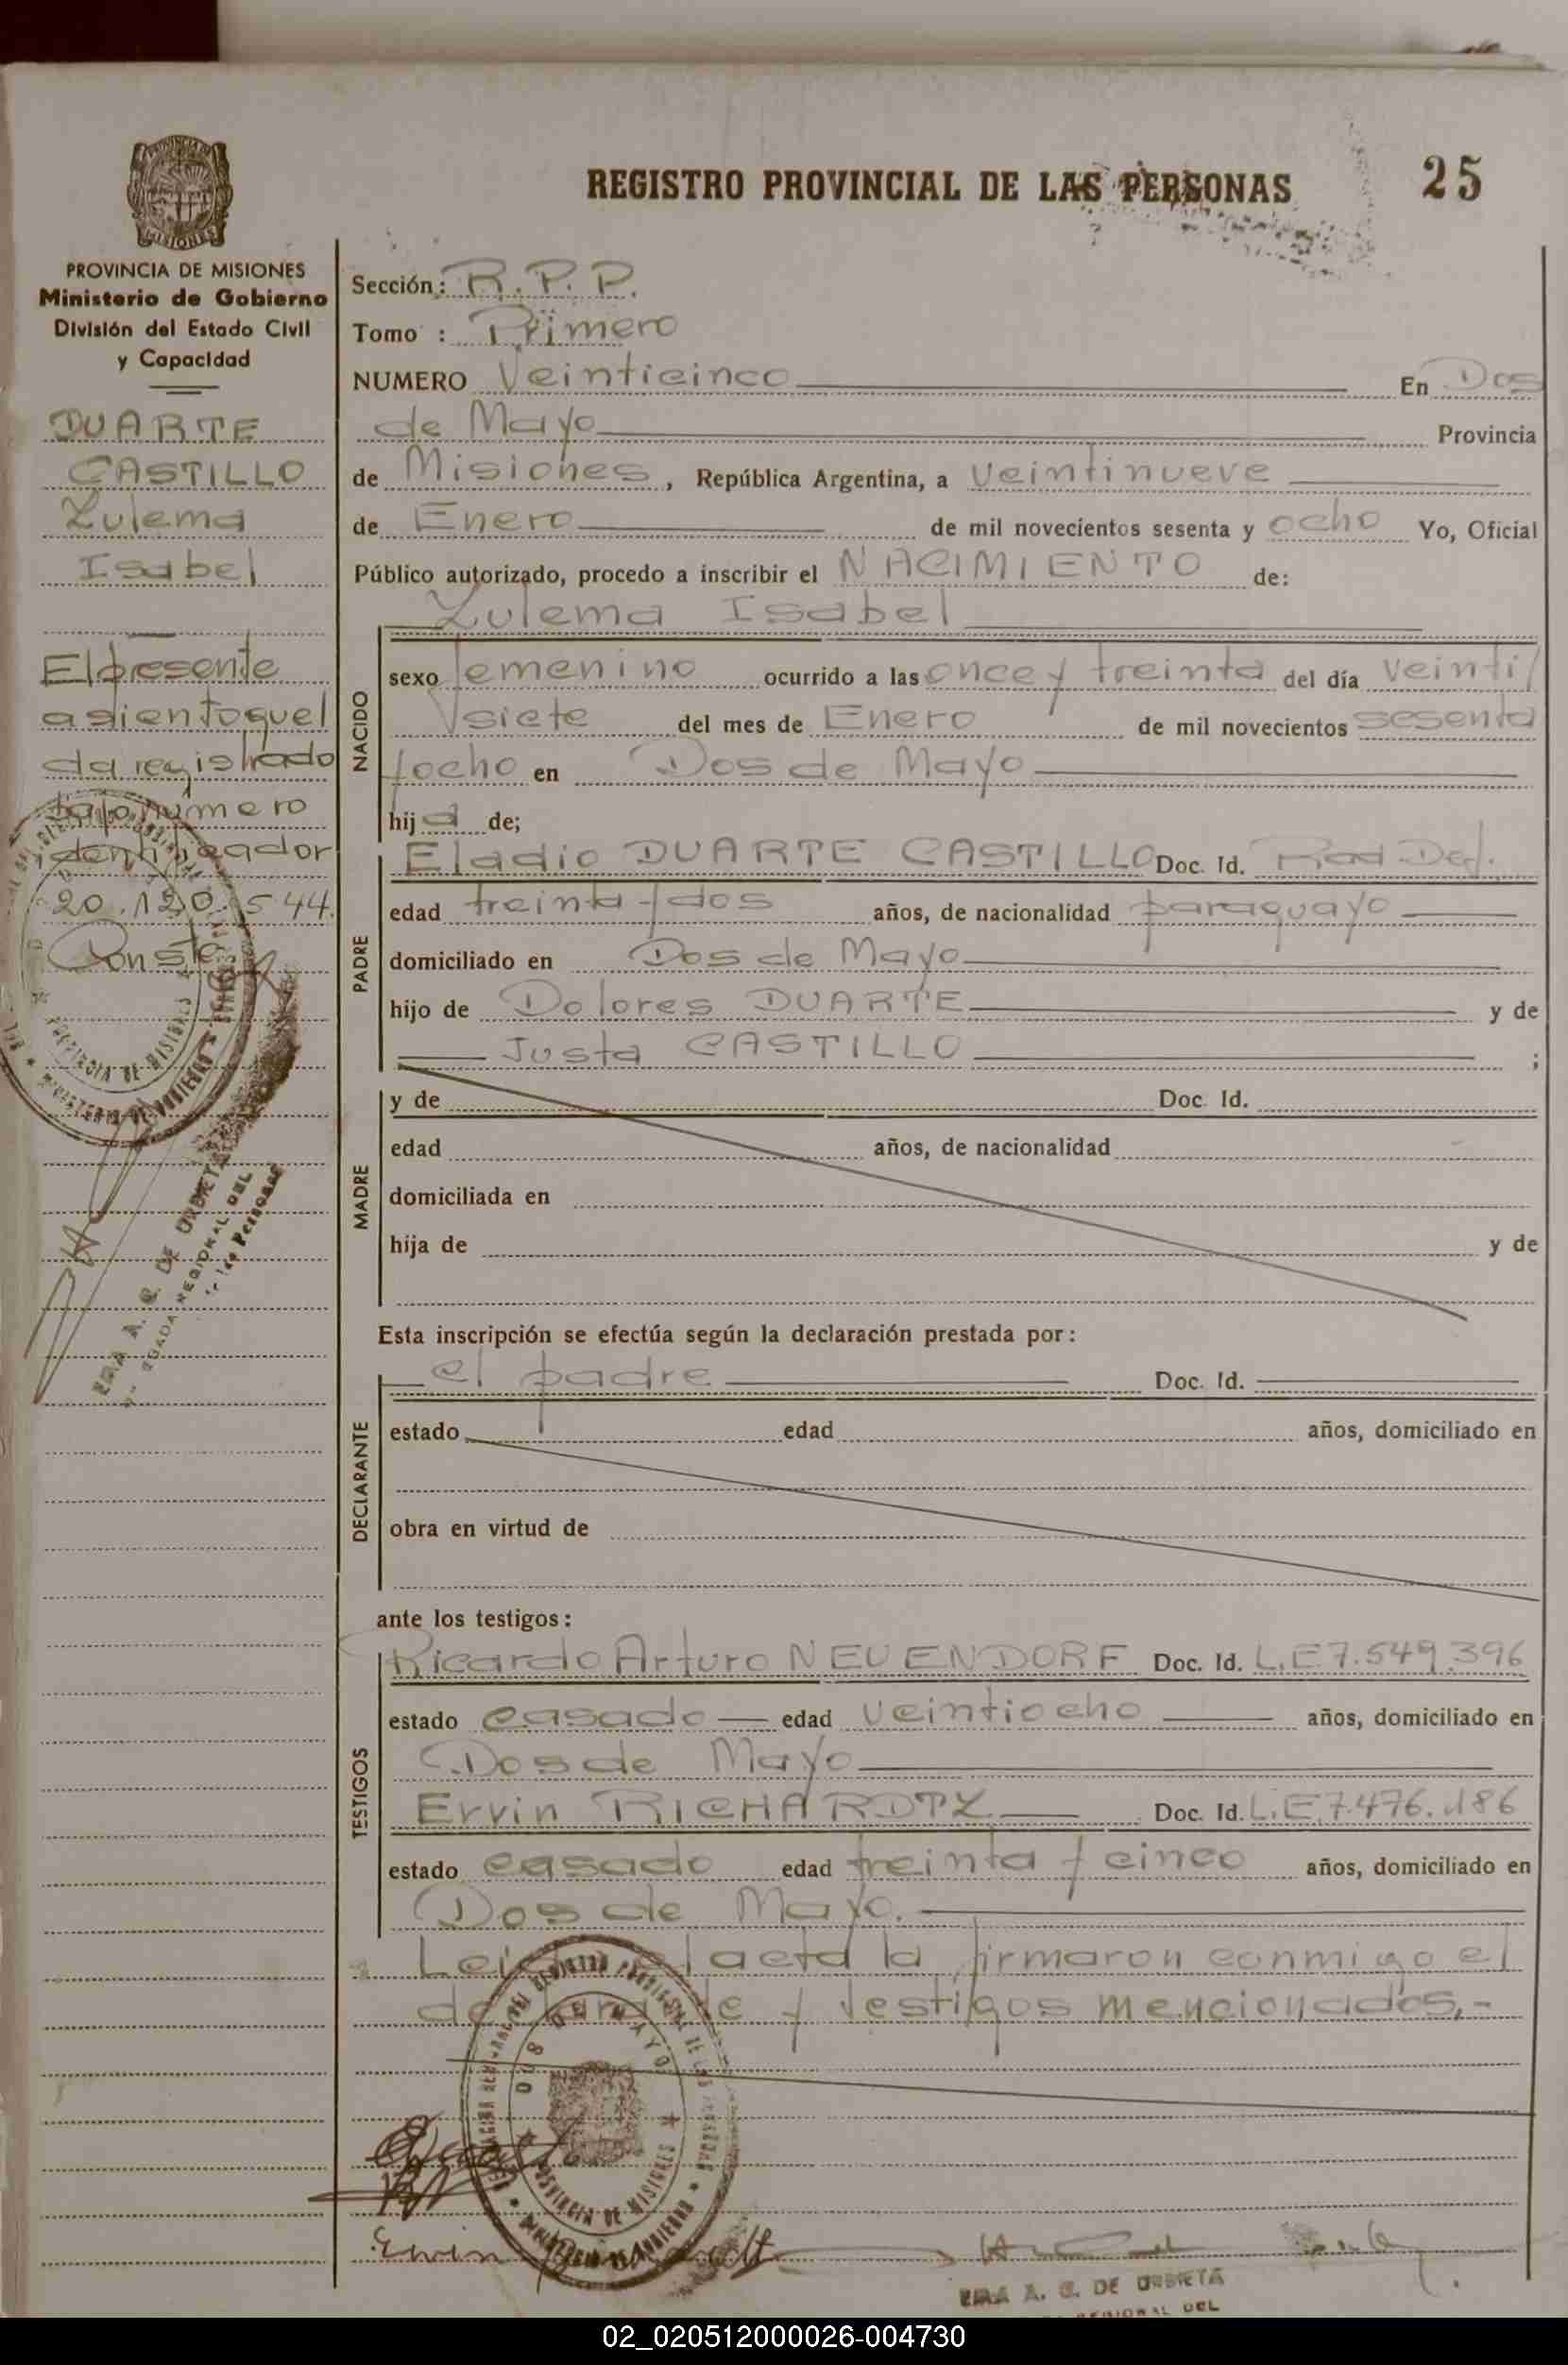 REGISTRO PROVINCIAL DE LAS PERSONAS 25
PROVINCIA DE MISIONES
Ministerio de Gobierno
División del Estado Civil
y Capacidad
DUARTE
CASTILLO
Zulema
Isabel
El presente
asiento quel
da registrado
bajo número
identificador
20.120.544.
Consta
Sección: R.P.P.
Tomo : Primero
NUMERO Veinticinco En Dos
de Mayo Provincia
de Misiones, República Argentina, a veintinueve
de Enero de mil novecientos sesenta y ocho Yo, Oficial
Público autorizado, procedo a inscribir el NACIMIENTO de:
Zulema Isabel
NACIDO
sexo femenino ocurrido a las once y treinta del día veinti/
siete del mes de Enero de mil novecientos sesenta
y ocho en Dos de Mayo
hija de;
PADRE
Eladio DUARTE CASTILLO Doc. Id. Rad. Def.
edad treinta y dos años, de nacionalidad paraguayo
domiciliado en Dos de Mayo
hijo de Dolores DUARTE y de
Justa CASTILLO ;
MADRE
y de Doc. Id.
edad años, de nacionalidad
domiciliada en
hija de y de
Esta inscripción se efectúa según la declaración prestada por:
DECLARANTE
el padre Doc. Id.
estado edad años, domiciliado en
obra en virtud de
ante los testigos:
TESTIGOS
Ricardo Arturo NEUENDORF Doc. Id. L.E 7.549.396
estado casado edad veintiocho años, domiciliado en
Dos de Mayo
Ervin RICHARDTZ Doc. Id. L.E. 7.476.186
estado casado edad treinta y cinco años, domiciliado en
Dos de Mayo.
Leida el acta la firmaron conmigo el
declarante y testigos mencionados.-
DOS DE MAYO
PROVINCIA DE MISIONES
MINISTERIO DE GOBIERNO
EMA A. G. DE URBIETA
REGIONAL DEL
02_020512000026-004730